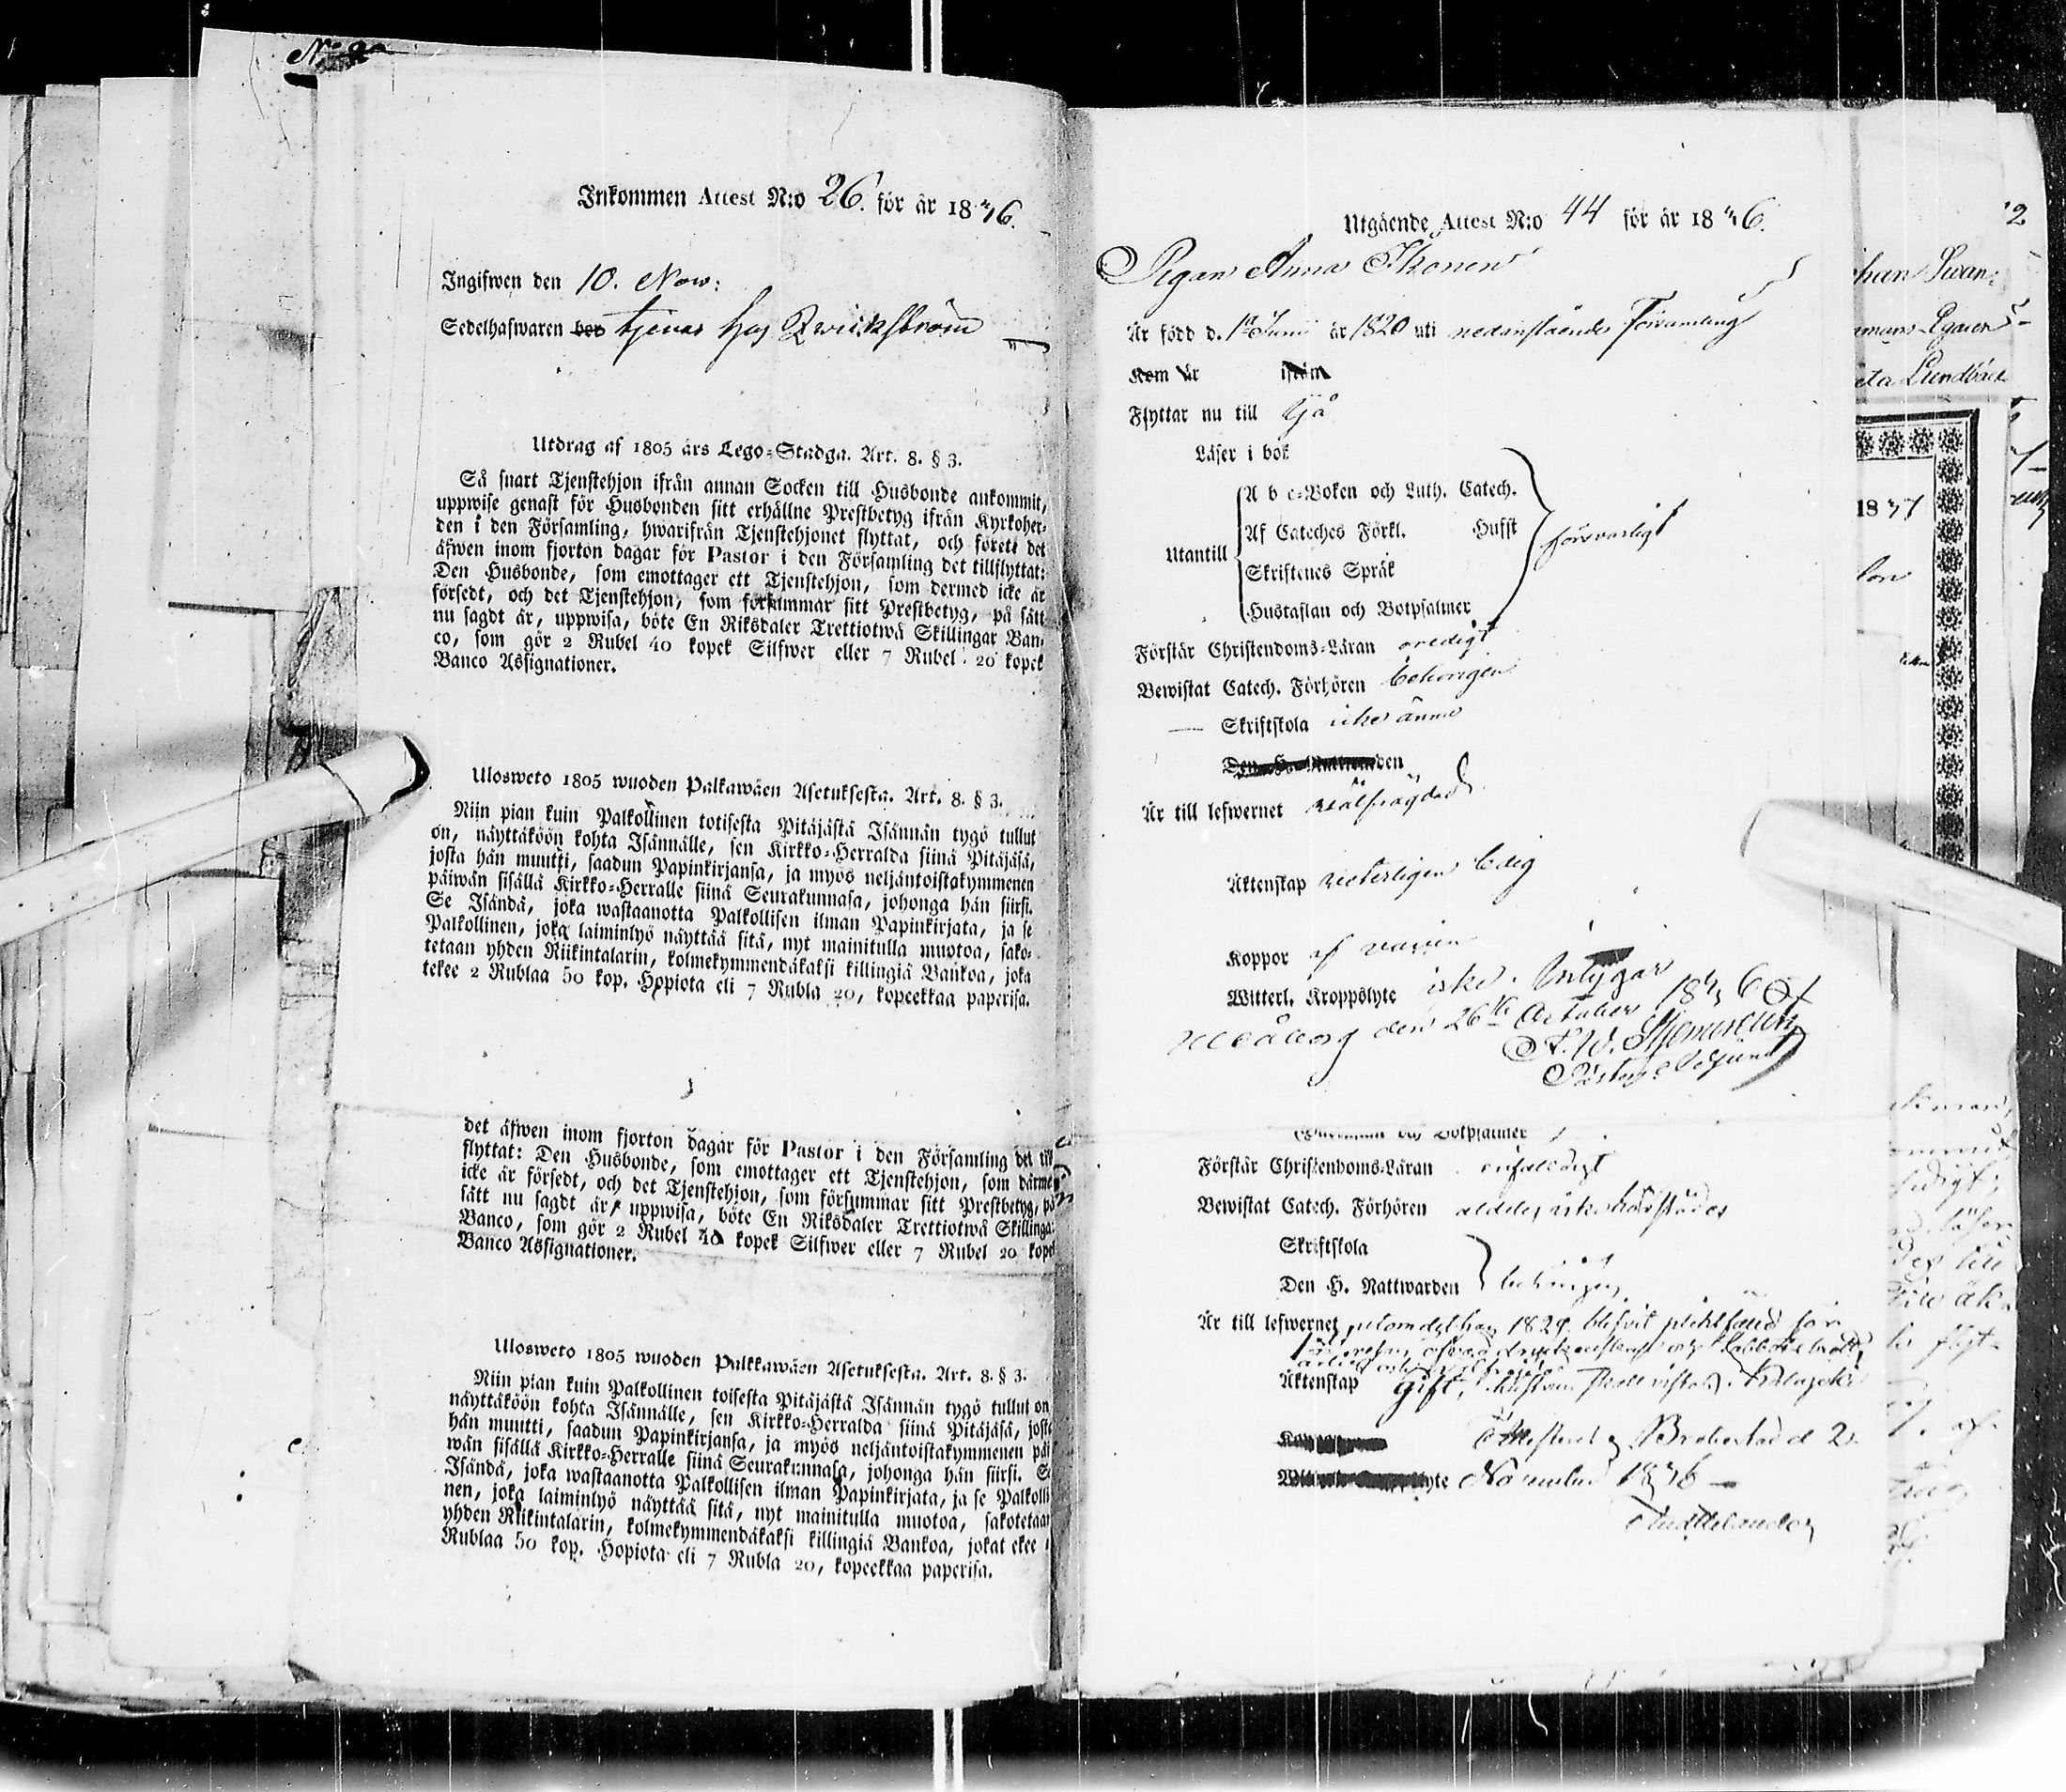 Inkommen Attest N:o 26. för år 1836.
Ingifwen den 10. Nov:
Sedelhafwaren bor tjenar hos Qwickström
Utdrag af 1805 års Lego-Stadga. Art. 8. § 3.
Så snart Tjenstehjon ifrån annan Socken till Husbonde ankommit,
uppwise genast för Husbonden sitt erhållne Prestbetyg ifrån Kyrkoher-
den i den Församling, hwarifrån Tjenstehjonet flyttat, och förete det
äfwen inom fjorton dagar för Pastor i den Församling det tillflyttat:
Den Husbonde, som emottager ett Tjenstehjon, som dermed icke är
försedt, och det Tjenstehjon, som försummar sitt Prestbetyg, på sätt
nu sagdt är, uppwisa, böte En Riksdaler Trettiotwå Skillingar Ban-
co, som gör 2 Rubel 40 kopek Silfwer eller 7 Rubel 20 kopek
Banco Assignationer.
Ulosweto 1805 wuoden Palkawäen Asetuksesta. Art. 8. § 3.
Niin pian kuin Palkollinen totisesta Pitäjästä Isännän tygö tullut
on, näyttäköön kohta Isännälle, sen Kirkko-Herralda siinä Pitäjäsä,
josta hän muutti, saadun Papinkirjansa, ja myös neljäntoistakymmenen
päiwän sisällä Kirkko-Herralle siinä Seurakunnasa, johonga hän siirsi.
Se Isändä, joka wastaanotta Palkollisen ilman Papinkirjata, ja se
Palkollinen, joka laiminlyö näyttää sitä, nyt mainitulla muotoa, sako-
tetaan yhden Riikintalarin, kolmekymmendäkaksi killingiä Bankoa, joka
tekee 2 Rublaa 50 kop. Hopiota eli 7 Rubla 20, kopeekkaa paperisa.
det äfwen inom fjorton dagar för Pastor i den Församling det till
flyttat: Den Husbonde, som emottager ett Tjenstehjon, som därme
icke är försedt, och det Tjenstehjon, som försummar sitt Prestbetyg, på
sätt nu sagdt är, uppwisa, böte En Riksdaler Trettiotwå Skillinga
Banco, som gör 2 Rubel 40 kopek Silfwer eller 7 Rubel 20 kopek
Banco Assignationer.
Ulosweto 1805 wuoden Palkkawäen Asetuksesta. Art. 8. § 3.
Niin pian kuin Palkollinen toisesta Pitäjästä Isännän tygö tullut on,
näyttäköön kohta Isännälle, sen Kirkko-Herralda siinä Pitäjäsä, josta
hän muutti, saadun Papinkirjansa, ja myös neljäntoistakymmenen päi
wän sisällä Kirkko-Herralle siinä Seurakunnasa, johonga hän siirsi. Se
Isändä, joka wastaanotta Palkollisen ilman Papinkirjata, ja se Palkolli
nen, joka laiminlyö näyttää sitä, nyt mainitulla muotoa, sakotetaan
yhden Riikintalarin, kolmekymmendäkaksi killingiä Bankoa, jokat ekee
Rublaa 50 kop. Hopiota eli 7 Rubla 20, kopeekkaa paperisa.
Utgående Attest N:o 44 för år 1836.
Pigan Anna Ikonen
Är född d. 1 Junii år 1820 uti nedanstående Församling
Kom år ifrån
Flyttar nu till Ijå
Läser i bok
A b c-Boken och Luth. Catech.
Af Cateches Förkl. Hufst
Utantill försvarligt
Skriftenes Språk
Hustaflan och Botpsalmer
Förstår Christendoms-Läran oredigt
Bewistat Catech. Förhören behörigen
Skriftskola icke ännu
Är till lefwernet välfrägdad
Äktenskap veterligen ledig
Koppor af vaccin
Witterl. Kroppslyte icke. Intygar
Uleåborg den 26 October 1836
Förstår Christendoms-Läran enfaldigt
Bewistat Catech. Förhören
Skriftskola
Den H. Nattwarden behörigen
Är till lefwernet
Äktenskap Gift,
Brahestad d 2
November 1836
1837